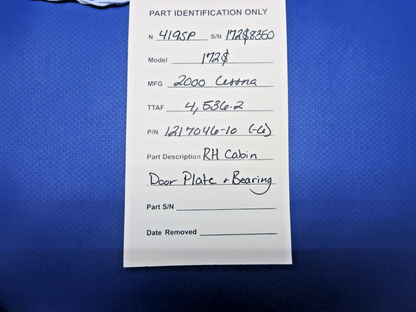 PART IDENTIFICATION ONLY
N 419SP S/N 172S8350
Model 172S
MFG 2000 Cessna
TTAF 4,536.2
P/N 1217046-10 (-6)
Part Description RH Cabin
Door Plate + Bearing
Part S/N
Date Removed